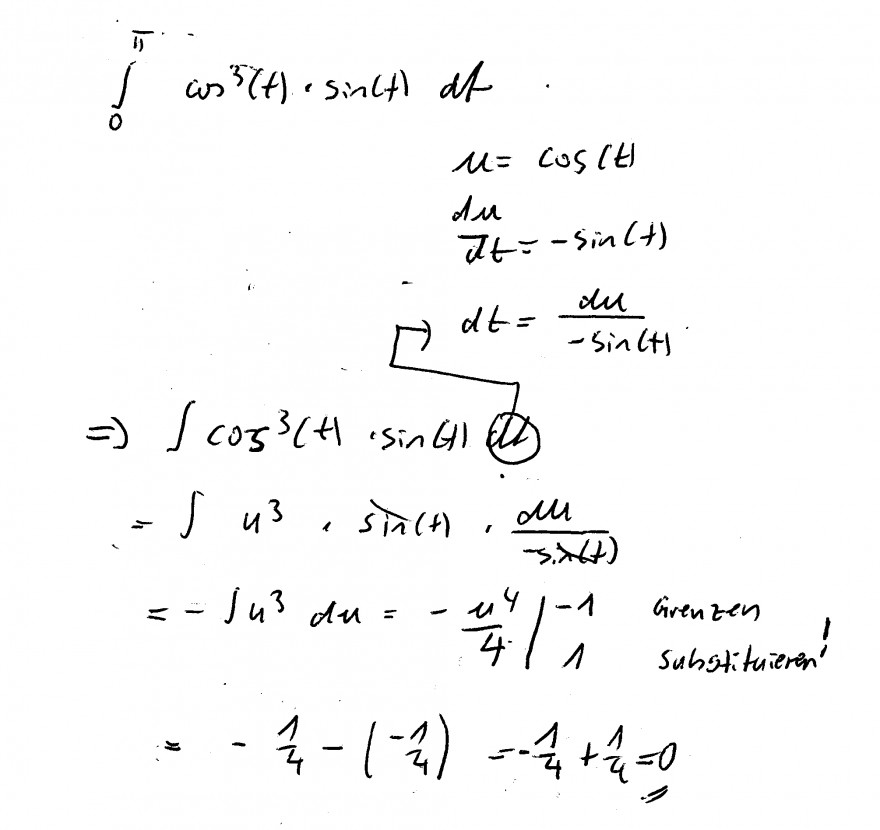 ∫₀^π cos³(t) · sin(t) dt
u = cos(t)
du/dt = -sin(t)
dt = du/-sin(t)
=> ∫ cos³(t) · sin(t) dt
= ∫ u³ · sin(t) · du/-sin(t)
= - ∫ u³ du = - u⁴/4 |₁^-1 Grenzen
substituieren!
= - 1/4 - (-1/4) = -1/4 + 1/4 = 0